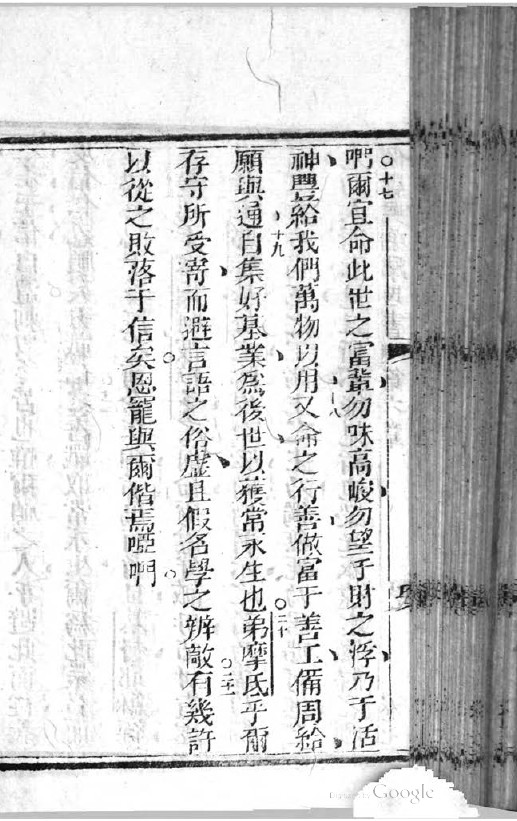 吶爾宜命此世之富輩勿味高峻勿望于財之浮乃于活
神豐給我們萬物以用又命之行善做富于善工備周給
願與通自集好基業為後世以獲常永生也弟摩氐乎爾
存守所受寄而避言語之俗虛且假名學之辨敵有幾許
以從之敗落于信矣恩寵與爾偕焉啞吶
○十七
十八
十九
○二十
○二十一
Google